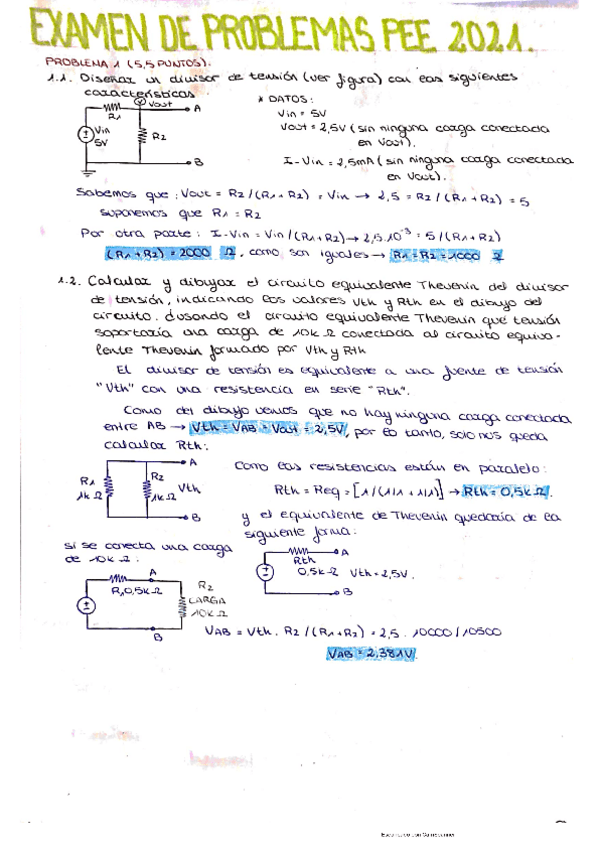 EXAMEN DE PROBLEMAS PEE 2021.
PROBLEMA 1 (5,5 PUNTOS).
1.1. Diseñar un divisor de tensión (ver figura) con las siguientes
características
Vout
A
R1
Vin
5V
R2
B
* DATOS:
Vin = 5V
Vout = 2,5V (sin ninguna carga conectada
en Vout).
I-Vin = 2,5mA (sin ninguna carga conectada
en Vout).
Sabemos que : Vout = R2/(R1+R2) = Vin → 2,5 = R2/(R1+R2) = 5
suponemos que R1 = R2
Por otra parte : I-Vin = Vin/(R1+R2) → 2,5.10⁻³ = 5/(R1+R2)
(R1+R2) = 2000 Ω, como son iguales → R1 = R2 = 1000 Ω
1.2. Calcular y dibujar el circuito equivalente Thevenin del divisor
de tensión, indicando los valores Vth y Rth en el dibujo del
circuito. ¿usando el circuito equivalente Thevenin que tensión
soportaría una carga de 10k Ω conectada al circuito equiva-
lente Thevenin formado por Vth y Rth
El divisor de tensión es equivalente a una fuente de tensión
"Vth" con una resistencia en serie "Rth".
Como del dibujo vemos que no hay ninguna carga conectada
entre AB → Vth = VAB = Vout = 2,5V, por lo tanto, solo nos queda
calcular Rth:
A
R1
1k Ω
R2
1k Ω
Vth
B
Como las resistencias están en paralelo:
Rth = Req = [1/(1/1 + 1/1)] → Rth = 0,5k Ω.
y el equivalente de Thevenin quedaría de la
siguiente forma:
A
Rth
0,5k Ω
Vth = 2,5V.
B
si se conecta una carga
de 10k Ω :
A
R1 0,5k Ω
R2
CARGA
10k Ω
B
VAB = Vth . R2/(R1+R2) = 2,5 . 10000/10500
VAB = 2,381V.